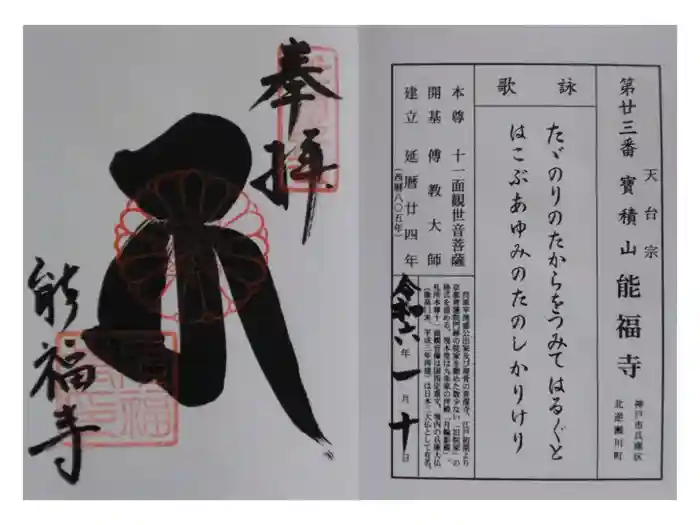 第廿三番
天台宗
寶積山
能福寺
神戸市兵庫区
北逆瀬川町
詠歌
たゞのりのたからをつみてはるぐと
はこぶあゆみのたのしかりけり
本尊 十一面観世音菩薩
開基 傳教大師
建立 延暦廿四年
(西暦八〇五年)
令和六年一月十日
奉拝
能福寺